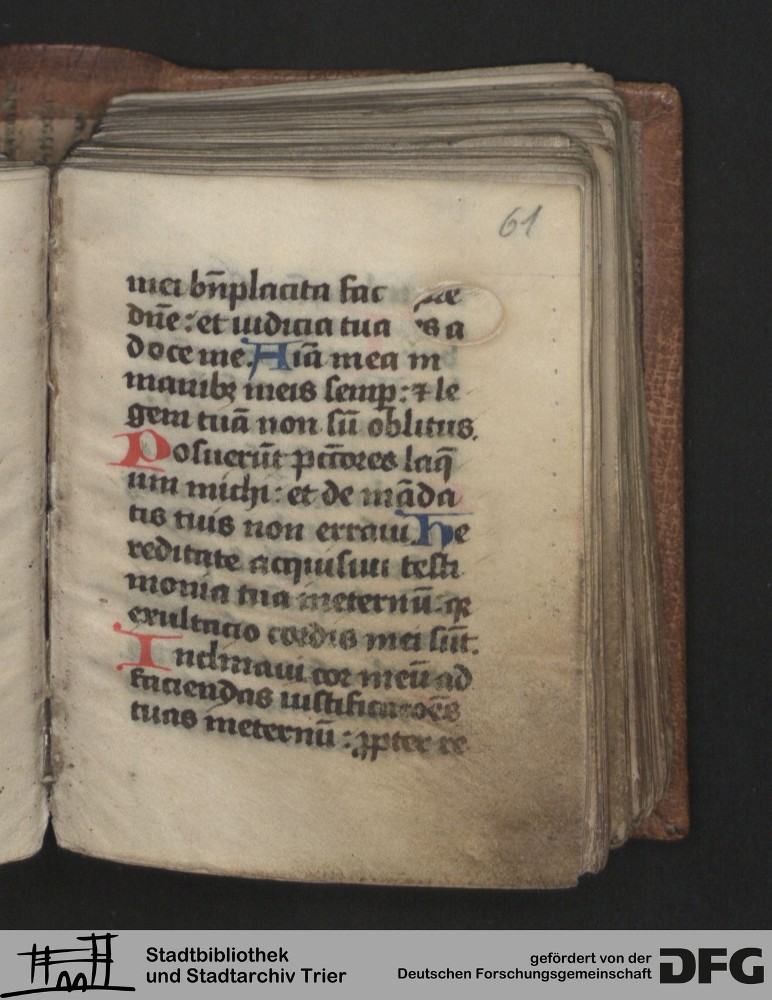 61
mei bn̄placita fac
dn̄e: et iudicia tua
doce me. Aīa mea in
manibꝫ meis semꝑ: ⁊ le
gem tuā non sū oblitus.
Posuerūt pctōres laq̄
um michi: et de māda
tis tuis non erraui. He
reditate acquisiui testi
monia tua ineternū: qꝛ
exultacio cordis mei sūt.
Inclinaui cor meū ad
faciendas iustificacoēs
tuas ineternū: ꝓpter re
Stadtbibliothek
und Stadtarchiv Trier
gefördert von der
Deutschen Forschungsgemeinschaft
DFG